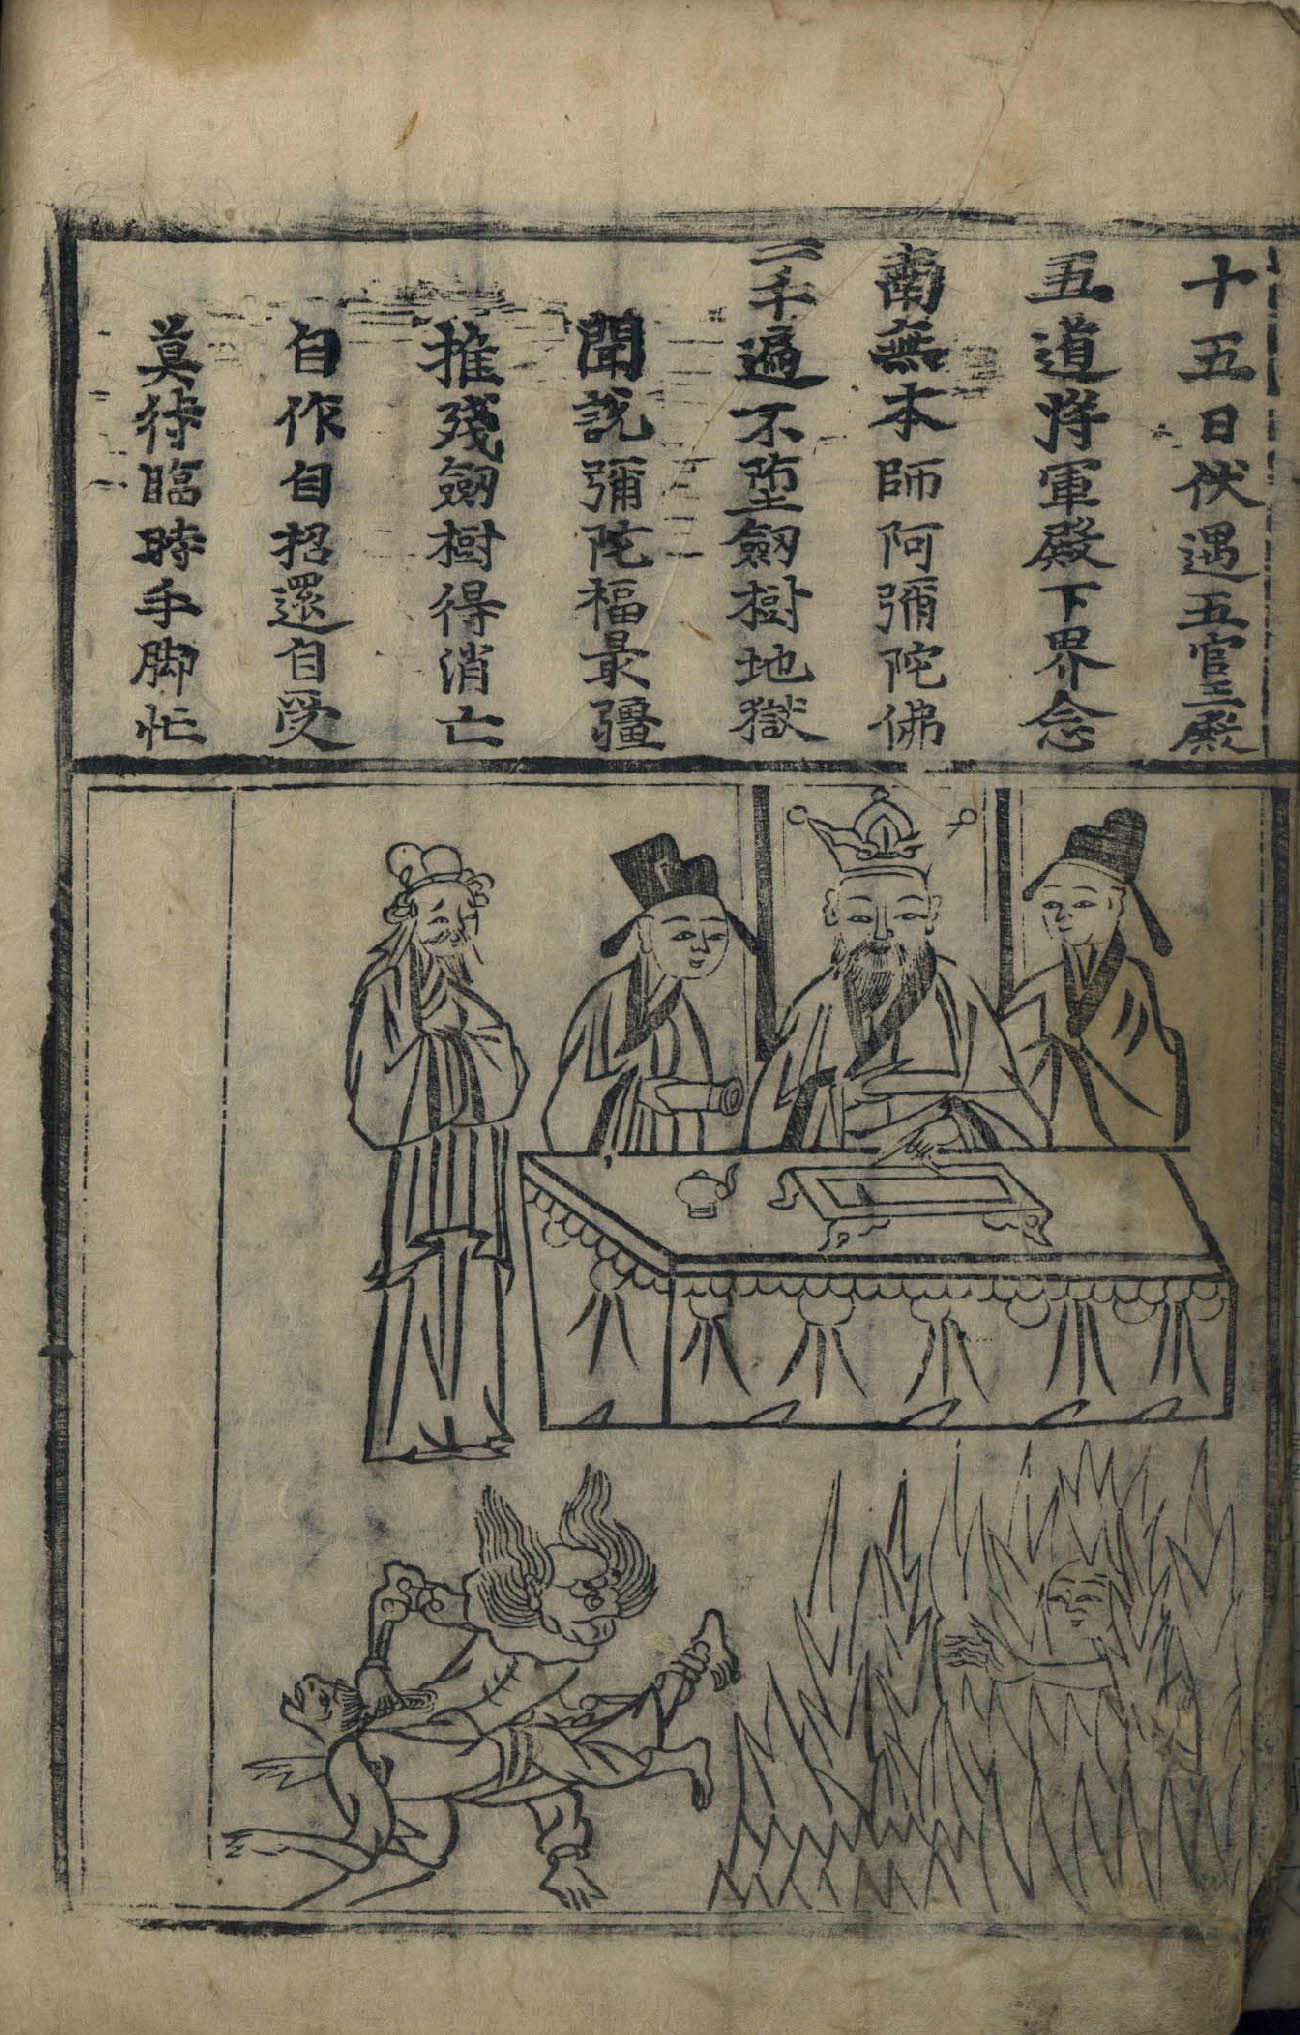 十五日伏遇五官王殿
五道將軍殿下界念
南無本師阿彌陀佛
一千遍不墮劒樹地獄
聞說彌陀福最彊
摧殘劒樹得消亡
自作自招還自受
莫待臨時手脚忙